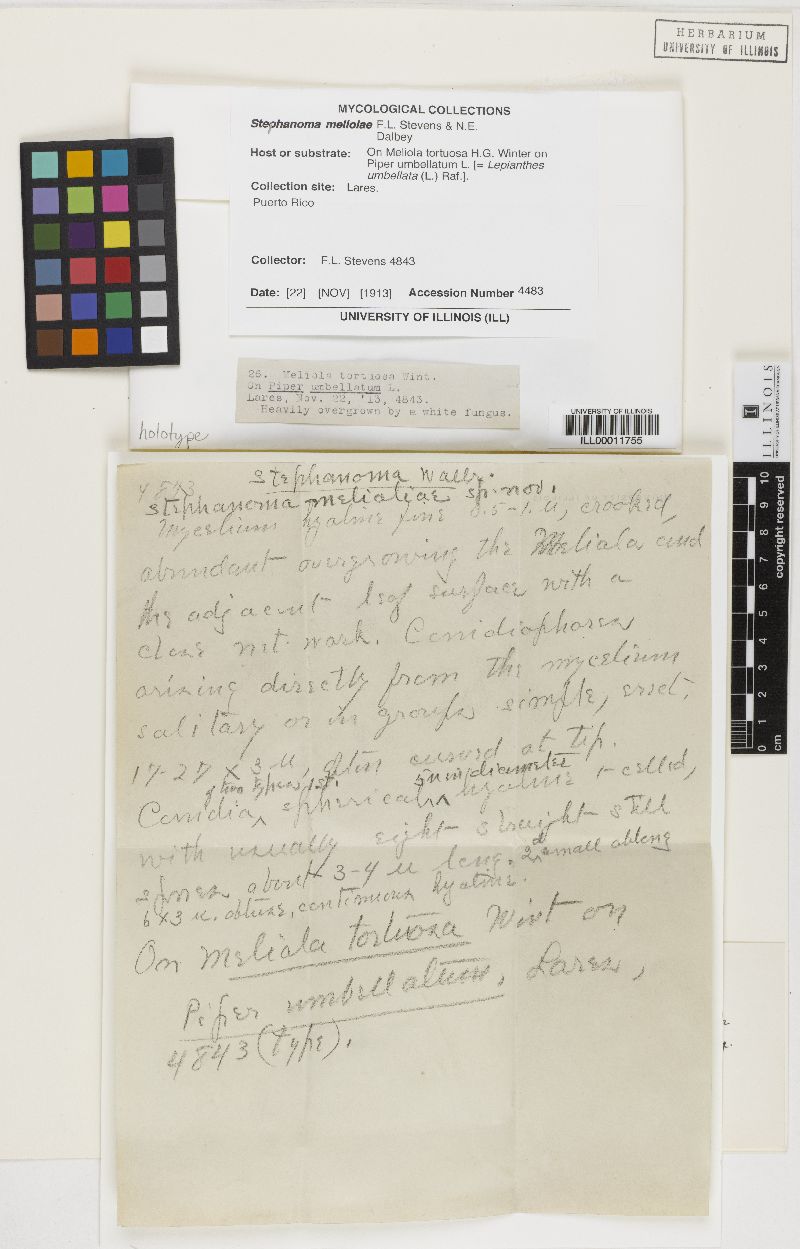 HERBARIUM
UNIVERSITY OF ILLINOIS
MYCOLOGICAL COLLECTIONS
Stephanoma meliolae F.L. Stevens & N.E.
Dalbey
Host or substrate: On Meliola tortuosa H.G. Winter on
Piper umbellatum L. [= Lepianthes
umbellata (L.) Raf.].
Collection site: Lares.
Puerto Rico
Collector: F.L. Stevens 4843
Date: [22] [NOV] [1913] Accession Number 4483
UNIVERSITY OF ILLINOIS (ILL)
26. Meliola tortuosa Wint.
On Piper umbellatum L.
Lares, Nov. 22, '13, 4843.
Heavily overgrown by a white fungus.
holotype
UNIVERSITY OF ILLINOIS
ILL00011755
ILLINOIS
0 1 2 3 4 5 6 7 8 9 10
cm
copyright reserved
4843
Stephanoma Wallr.
Stephanoma melioliae sp. nov.
Mycelium hyaline fine 0.5-1. u, crooked,
abundant overgrowing the Meliola and
the adjacent leaf surface with a
close net work. Conidiophores
arising directly from the mycelium
solitary or in groups simple, erect,
17-27 x 3 u, often curved at tip.
of two types 1st. 5 u in diameter
Conidia, spherical, hyaline 1-celled,
with usually eight straight still
spores about 3-4 u long. 2d small oblong
6 x 3 u. obtuse, continuous hyaline.
On Meliola tortuosa Wint on
Piper umbellatum, Lares,
4843 (type).